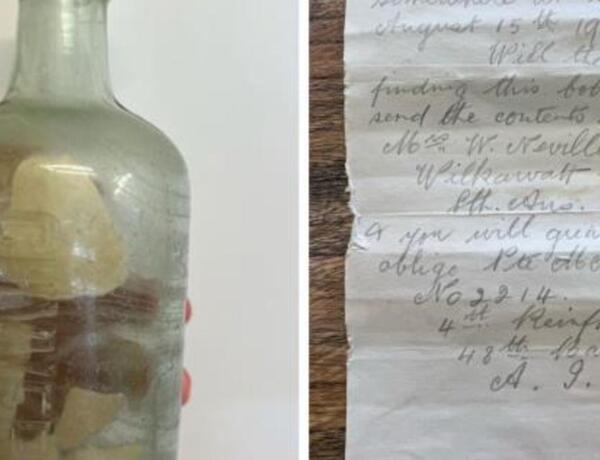 August 15th 19
Will th
finding this bot
send the contents
Mrs W. Neville
Wilkawatt
Sth. Aus.
& you will grea
oblige Pte
No 2214.
4th Reinf
48th
A. I.